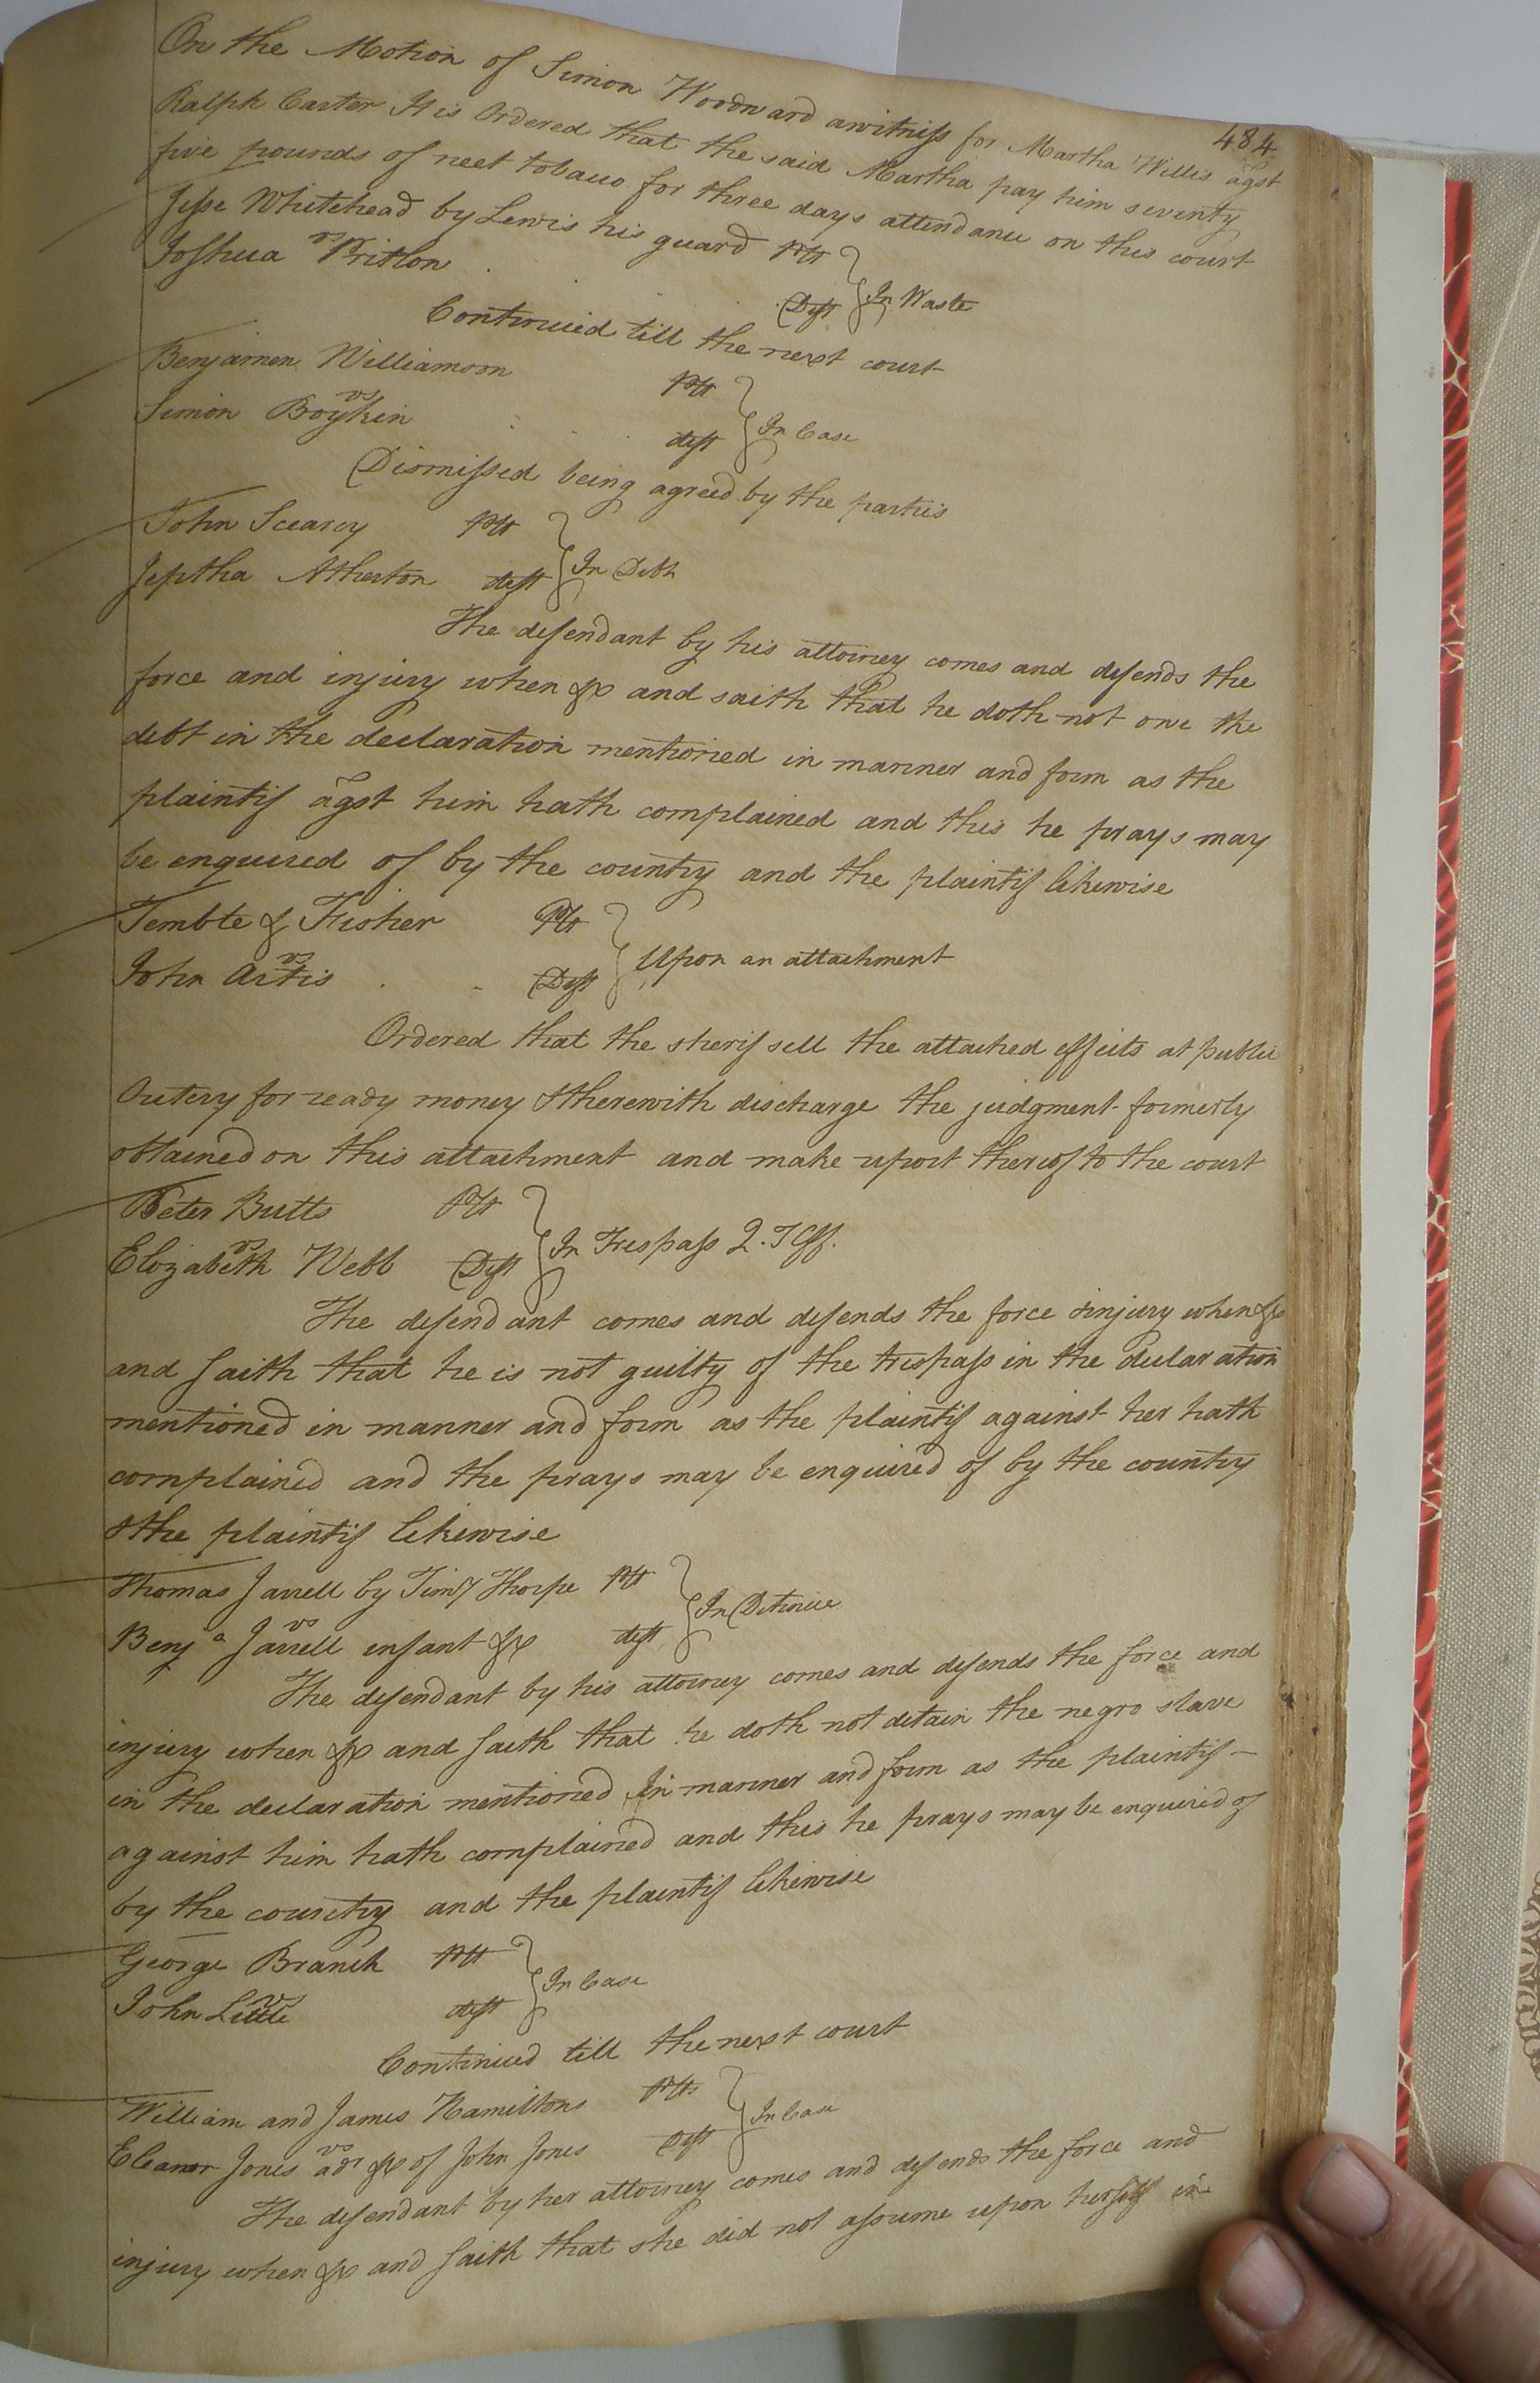 484
On the Motion of Simon Woodward a witness for Martha Willis agst
Ralph Carter It is Ordered that the said Martha pay him seventy
five pounds of neet tobacco for three days attendance on this court
Jesse Whitehead by Lewis his guard Plt
vs
In Waste
Joshua Britton Deft
Continued till the next court
Benjamen Williamson Plt
vs
In Case
Simon Boykin deft
Dismissed being agreed by the parties
John Scearcy Plt
In Debt
Jeptha Atherton deft
The defendant by his attorney comes and defends the
force and injury when &c and saith that he doth not owe the
debt in the declaration mentioned in manner and form as the
plaintif agst him hath complained and this he prays may
be enquired of by the country and the plaintif likewise
Temble & Fisher Plt
vs
Upon an attachment
John Artis Deft
Ordered that the sherif sell the attached effects at public
Outcry for ready money & therewith discharge the judgment formerly
obtained on this attachment and make report thereof to the court
Peter Butts Plt
vs
In Trespass Q. T Cff.
Elizabeth Webb Deft
The defendant comes and defends the force & injury when &c
and saith that he is not guilty of the trespass in the declaration
mentioned in manner and form as the plaintif against her hath
complained and the prays may be enquired of by the country
& the plaintif likewise
Thomas Jarrell by Timy Thorpe Plt
vs
In Detinue
Benja Jarrell infant &c deft
The defendant by his attorney comes and defends the force and
injury when &c and saith that he doth not detain the negro slave
in the declaration mentioned In manner and form as the plaintif
against him hath complained and this he prays may be enquired of
by the country and the plaintif likewise
George Branch Plt
vs
In Case
John Little deft
Continued till the next court
William and James Hamiltons Plts
vs
In Case
Eleanor Jones adr &c of John Jones Deft
The defendant by her attorney comes and defends the force and
injury when &c and saith that she did not assume upon herself in